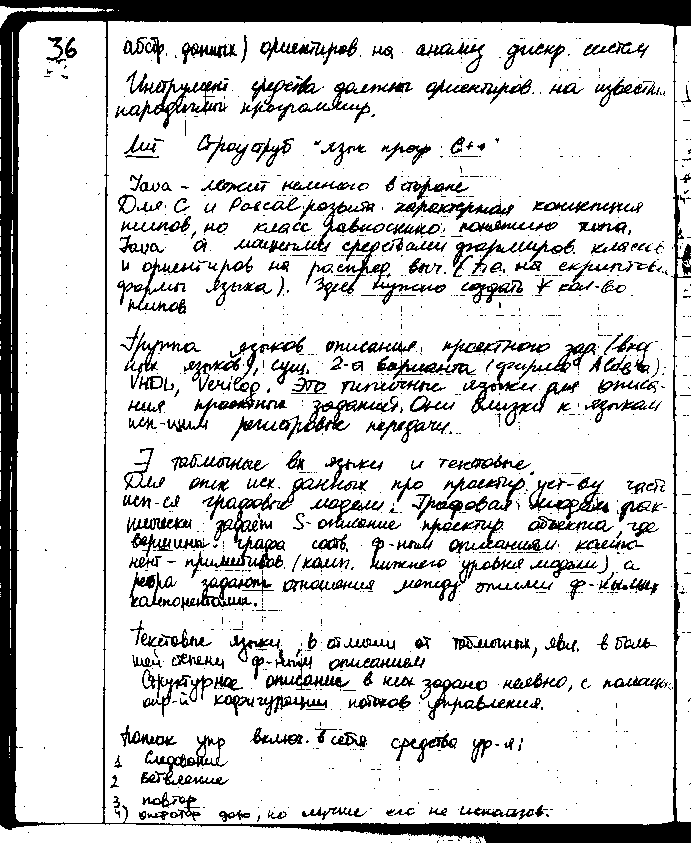 36
абстр. данных) ориентиров. на анализ дискр. систем
Инструмент. средства должны ориентиров. на известн.
парадигмы программир.
Лит Строуструб "язык прогр C++"
Java – лежит немного в стороне
Для C и Pascal развита характерная концепция
типов, но класс равносилен понятию типа.
Java д. мощными средствами формиров. классов
и ориентиров на распред. выч. ( на скриптов.
формы языка). Здесь нужно создать ∀ кол-во
типов
Группа языков описания проектного зад. (вход
ных языков), сущ. 2-а варианта (фирма )
VHDL, Verilog. Это типичные языки для описа-
ния проектных заданий. Они близки к языкам
исп-щим регистровые передачи.
∃ табличные вх языки и текстовые.
Для опис исх. данных про проектир. уст-ву часто
исп-ся графовые модели. Графовая модель фак-
тически задаёт S-описание проектир объекта, где
вершины графа соотв. ф-ным описаниям компо-
нент – примитивов (комп. нижнего уровня модели), а
ребра задают отношения между этими ф-ными
компонентами.
Текстовые языки, в отличии от табличных, явл. в боль-
шей степени ф-ным описанием
Структурное описание в них задано неявно, с помощью
опр-й конфигурации потоков управления.
Поток упр включ. в себя средства упр-я:
1 Следование
2 ветвление
3. повтор
4) оператор goto, но лучше его не использов.